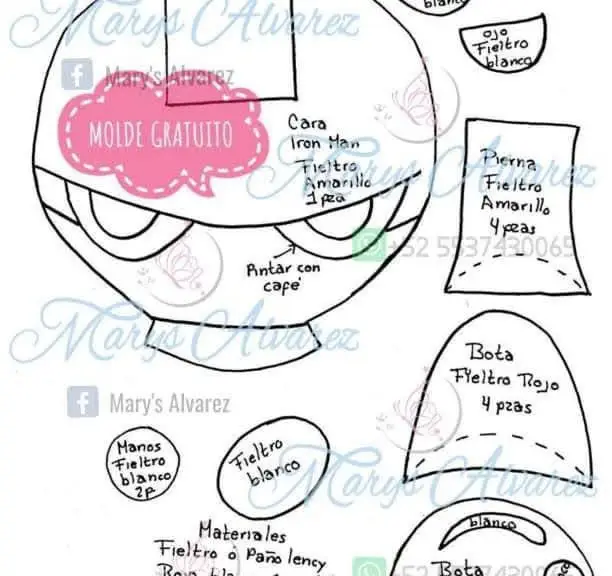 Marys Alvarez
blanco
ojo
Fieltro
blanco
Mary's Alvarez
MOLDE GRATUITO
Cara
Iron Man
Fieltro
Amarillo
1 pza
Marys Alvarez
Pierna
Fieltro
Amarillo
4 pzas
+52 5537430065
Pintar con
café
Marys Alvarez
Bota
Fieltro Rojo
4 pzas
Mary's Alvarez
Manos
Fieltro
blanco
2p
Fieltro
blanco
Marys Alvarez
Materiales
Fieltro ó Paño lency
blanco
Bota
+52 5537430065